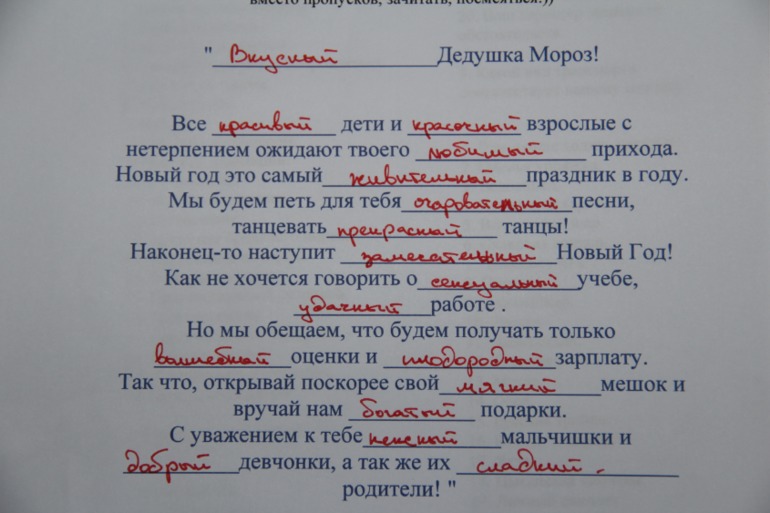 вместо пропусков, зачитать, посмеяться!))
" Вкусный Дедушка Мороз!
Все красивый дети и красочный взрослые с
нетерпением ожидают твоего любимый прихода.
Новый год это самый живительный праздник в году.
Мы будем петь для тебя очаровательный песни,
танцевать прекрасный танцы!
Наконец-то наступит замечательный Новый Год!
Как не хочется говорить о сексуальный учебе,
удачный работе .
Но мы обещаем, что будем получать только
волшебный оценки и плодородный зарплату.
Так что, открывай поскорее свой мягкий мешок и
вручай нам богатый подарки.
С уважением к тебе нежный мальчишки и
добрый девчонки, а так же их сладкий .
родители! "